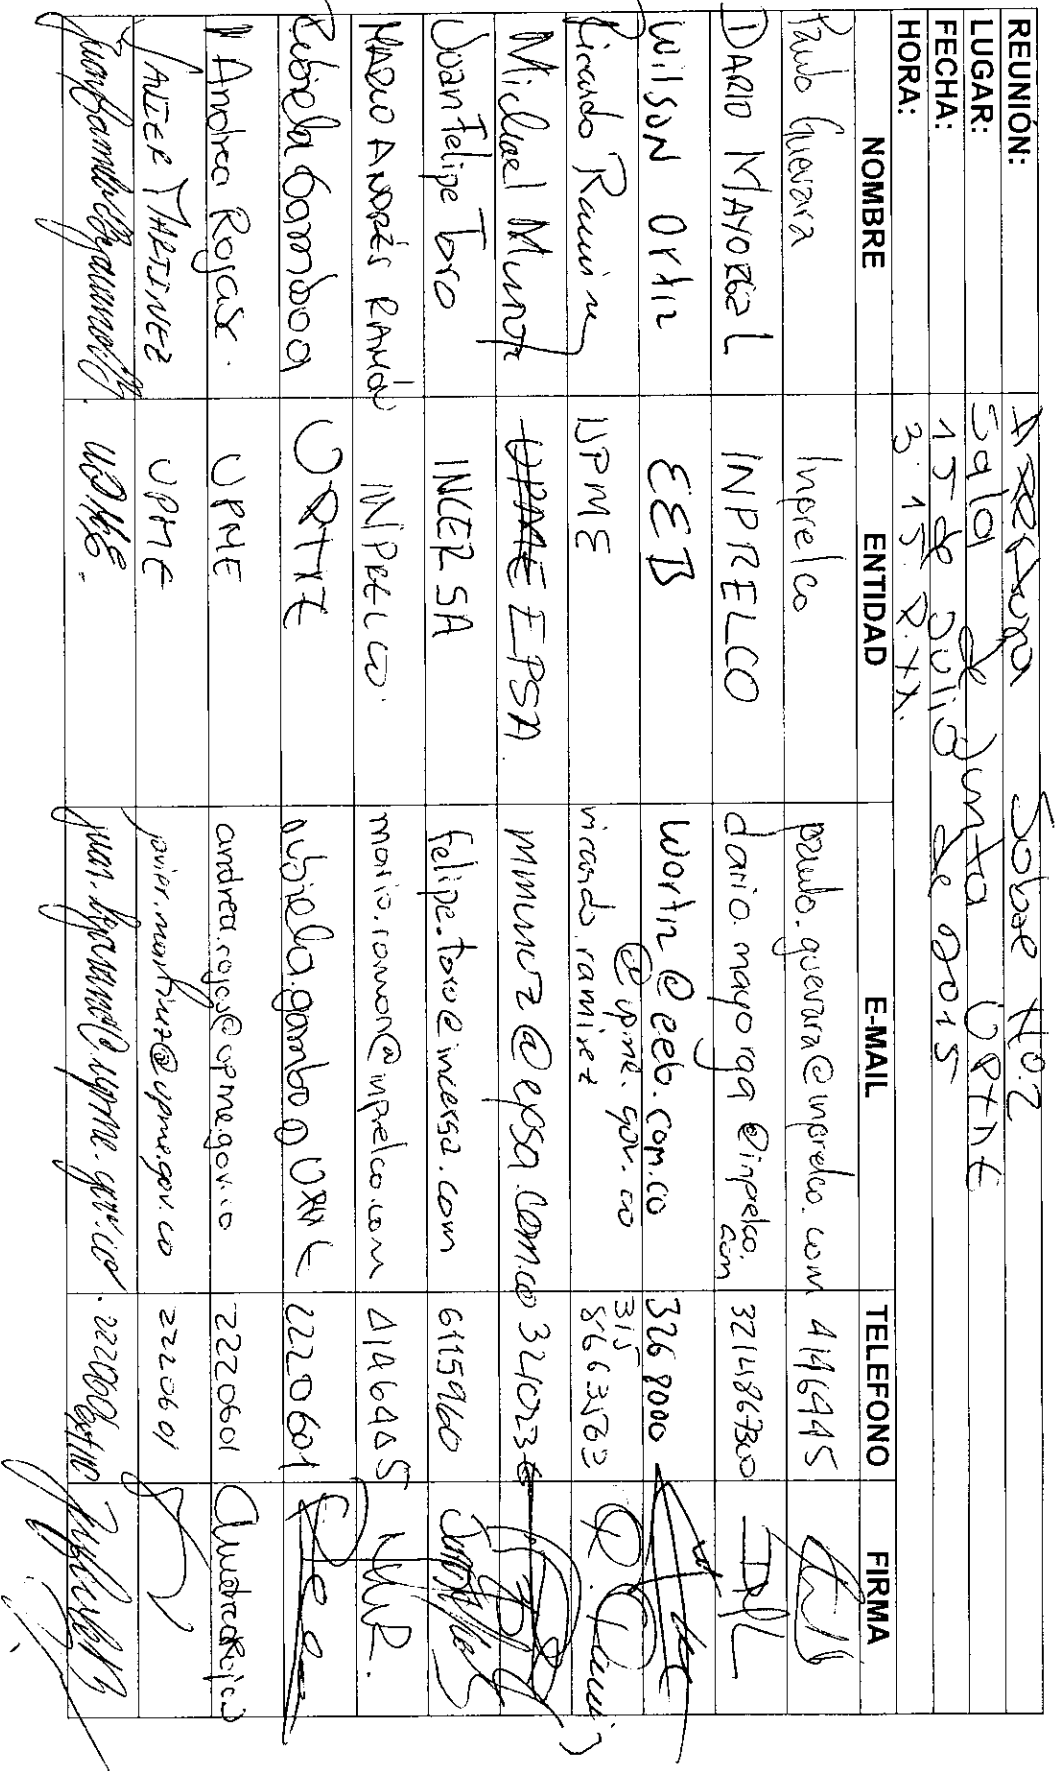 REUNIÓN: Apertura Sobre No. 2
LUGAR: Sala de Junta UPME
FECHA: 15 de Julio de 2015
HORA: 3:15 P.M.
NOMBRE ENTIDAD E-MAIL TELEFONO FIRMA
Paulo Guevara Inprelco paulo.guevara@inprelco.com 4146445
DARIO MAYORGA L INPRELCO dario.mayorga@inprelco.com 3214867300
Wilson Ortiz EEB wortiz@eeb.com.co 3268000
Ricardo Ramirez UPME ricardo.ramirez@upme.gov.co 315 8663563
Michael Munoz UPME EPSA mmunoz@epsa.com.co
Juan Felipe Toro INCER SA felipe.toro@incersa.com 6115960
MARIO ANDRÉS RAMÓN INPRELCO. mario.ramon@inprelco.com 4146445
Rubiela Gamboa UPME rubiela.gamboa UPME 2220601
Andrea Rojas. UPME andrea.rojas@upme.gov.co 2220601 Andrea Rojas
JAVIER MARTINEZ UPME javier.martinez@upme.gov.co 2220601
UPME. 2220601